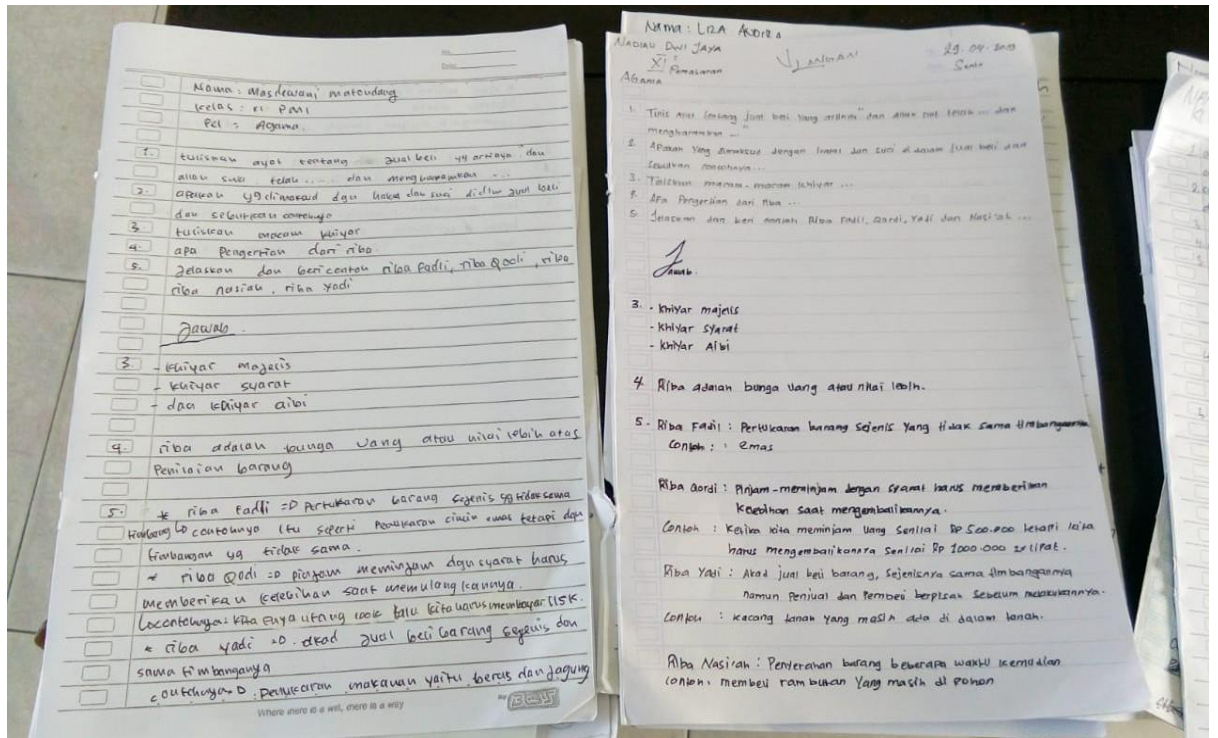 Nama : Masdewani matondang
kelas : XI PM1
Pel : Agama
1. tuliskan ayat tentang jual beli yg artinya " dan
allah swt telah ..... dan mengharamkan ...
2. apakah yg dimaksud dgn halal dan suci didlm jual beli
dan sebutkan contohnya
3. tuliskan macam khiyar
4. apa pengertian dari riba
5. Jelaskan dan beri contoh riba Fadli, riba Qodi, riba
riba nasiah, riba yadi
Jawab.
3. - khiyar majelis
- khiyar syarat
- dan khiyar aibi
4. riba adalah bunga uang atau nilai lebih atas
Penilaian barang
5. * riba Fadli => Pertukaran barang sejenis yg tidak sama
timbang contohnya itu seperti Penukaran cincin emas tetapi dgn
timbangan yg tidak sama.
* riba Qodi => pinjam meminjam dgn syarat harus
memberikan kelebihan saat memulangkannya.
contohnya: kita Punya utang 100k lalu kita harus membayar 115k.
* riba yadi => akad jual beli barang sejenis dan
sama timbanganya
contohnya => Penukaran makanan yaitu beras dan jagung
Where there is a will, there is a way
Nama : LIZA
NADIAH DWI JAYA
XI Pemasaran
29-04-2019
Senin
AGAMA
1. Tulis Ayat tentang jual beli yang artinya " dan Allah swt telah ... dan
mengharamkan ... "
2. Apakah Yang dimaksud dengan halal dan suci di dalam jual beli dan
Sebutkan contohnya ...
3. Tuliskan macam-macam khiyar ...
4. Apa Pengertian dari riba ...
5. Jelaskan dan beri contoh Riba Fadil, Qardi, Yadi dan Nasi'ah ...
Jawab.
3. - Khiyar majelis
- Khiyar syarat
- Khiyar Aibi
4. Riba adalah bunga uang atau nilai lebih.
5. Riba Fadil : Pertukaran barang sejenis Yang tidak sama timbangannya
Contoh : : Emas
Riba Qordi : Pinjam-meminjam dengan syarat harus memberikan
kelebihan saat mengembalikannya.
Contoh : Ketika kita meminjam Uang Senilai Rp 500.000 tetapi kita
harus mengembalikannya Senilai Rp 1000.000 2x lipat.
Riba Yadi : Akad jual beli barang, Sejenisnya sama timbangannya
namun Penjual dan Pembeli berpisah Sebelum melakukannya.
Contoh : Kacang tanah Yang masih ada di dalam tanah.
Riba Nasi'ah : Penyerahan barang beberapa waktu kemudian
Contoh: membeli rambutan Yang masih di pohon